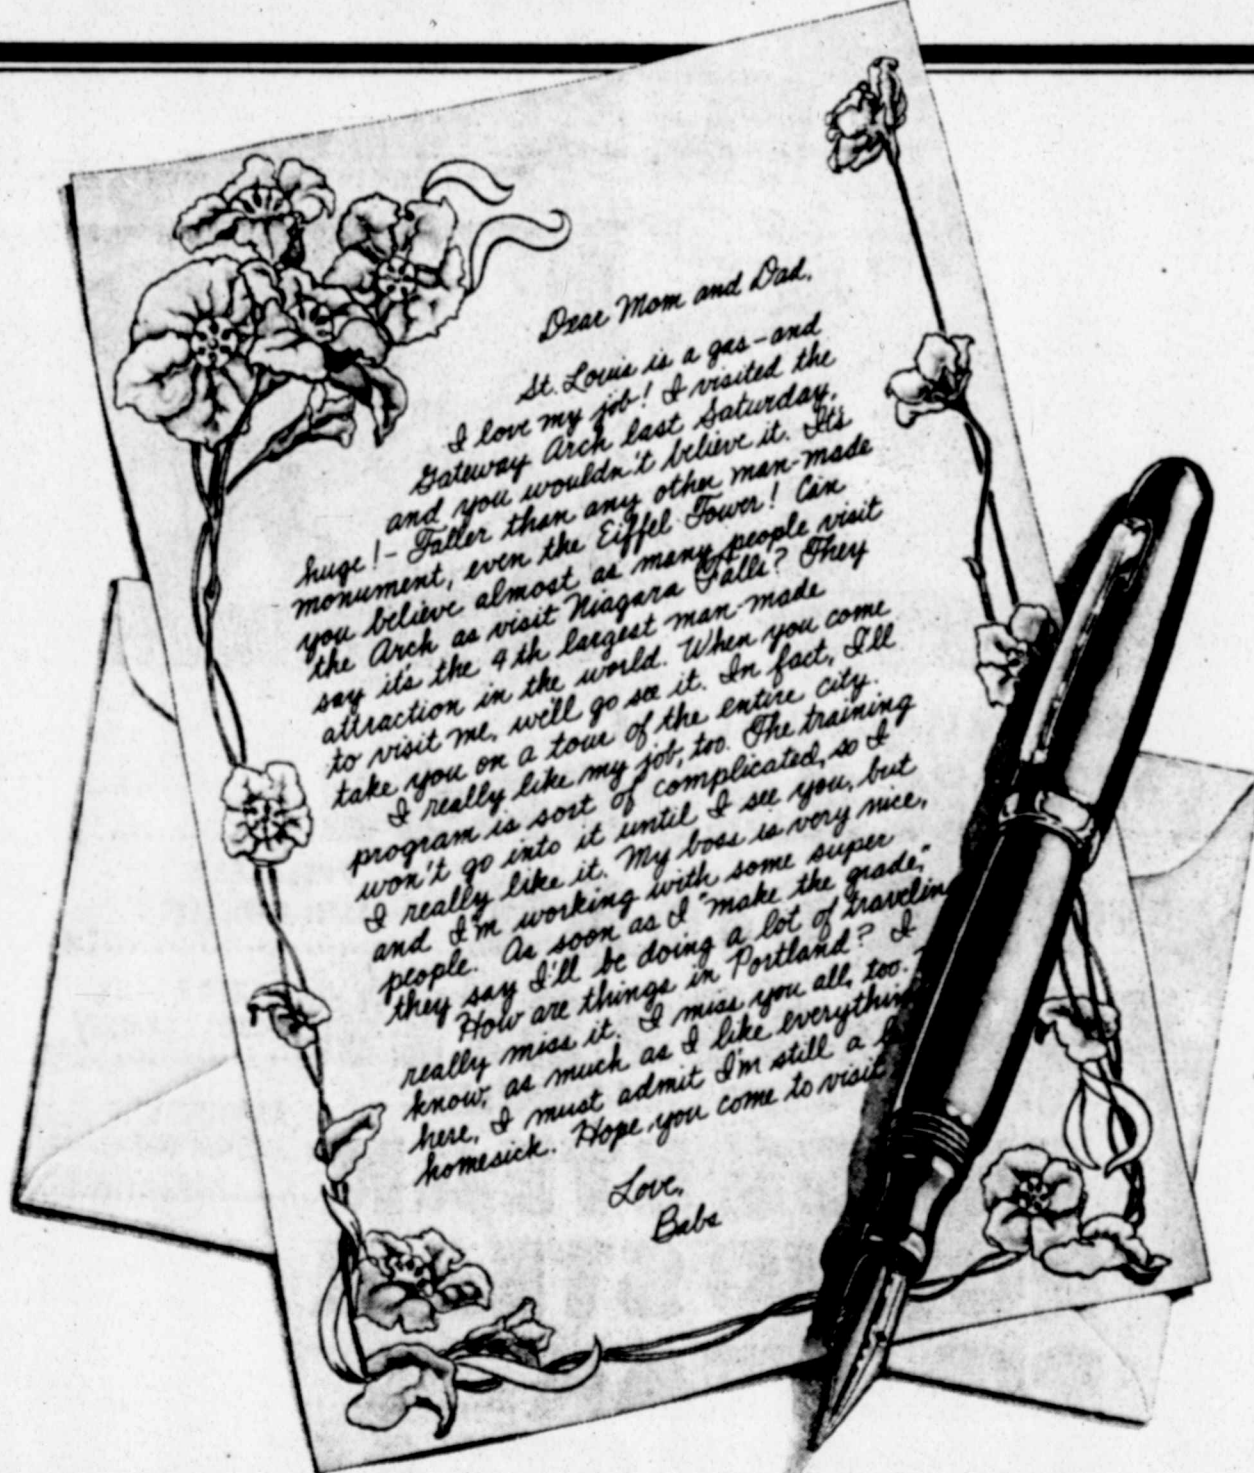 Dear Mom and Dad,
St. Louis is a gas – and
I love my job! I visited the
Gateway Arch last Saturday,
and you wouldn't believe it. It's
huge! – Taller than any other man-made
monument, even the Eiffel Tower! Can
you believe almost as many people visit
the Arch as visit Niagara Falls? They
say it's the 4th largest man-made
attraction in the world. When you come
to visit me, we'll go see it. In fact, I'll
take you on a tour of the entire city.
I really like my job, too. The training
program is sort of complicated, so I
won't go into it until I see you, but
I really like it. My boss is very nice,
and I'm working with some super
people. As soon as I "make the grade,"
they say I'll be doing a lot of travelin
How are things in Portland? I
really miss it. I miss you all, too.
know, as much as I like everythin
here, I must admit I'm still a
homesick. Hope you come to visit
Love,
Babs